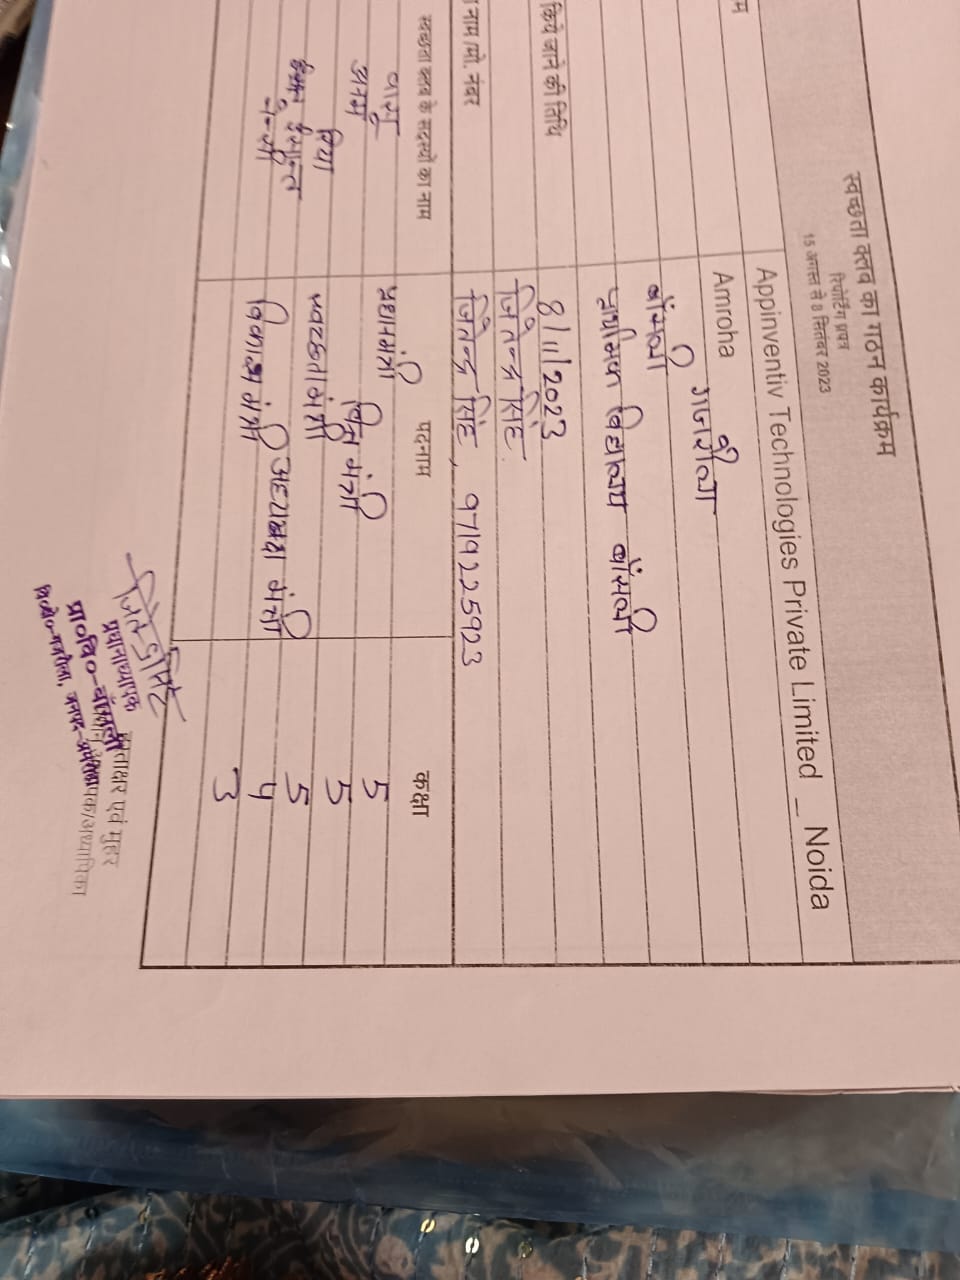 स्वच्छता क्लब का गठन कार्यक्रम
रिपोर्टिंग प्रपत्र
15 अगस्त से 8 सितंबर 2023
म
Appinventiv Technologies Private Limited _ Noida
Amroha
गजरौला
बाँसली
प्राथमिक विद्यालय बाँसली
किये जाने की तिथि 8/11/2023
जितेन्द्र सिंह
नाम /मो. नंबर जितेन्द्र सिंह, 9719225923
स्वच्छता क्लब के सदस्यों का नाम पदनाम कक्षा
प्रधानमंत्री 5
अनम वित्त मंत्री 5
रिया स्वच्छता मंत्री 5
अध्यक्ष मंत्री 4
विकास मंत्री 3
हस्ताक्षर एवं मुहर
प्रधानाध्यापक
प्रा०वि०-बाँसली
वि०क्षे०-गजरौला, जनपद-अमरोहा